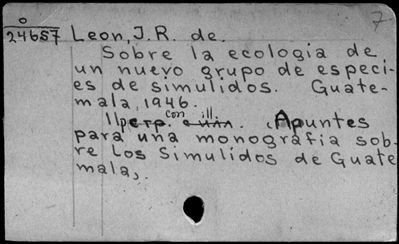 7
o
24657 Leon, J.R. de.
Sobre la ecologia de
un nuevo grupo de especi-
es de simulidos. Guate-
mala, 1946.
11p con ill. (Apuntes
para una monografia sob-
re los Simulidos de Guate
mala,.